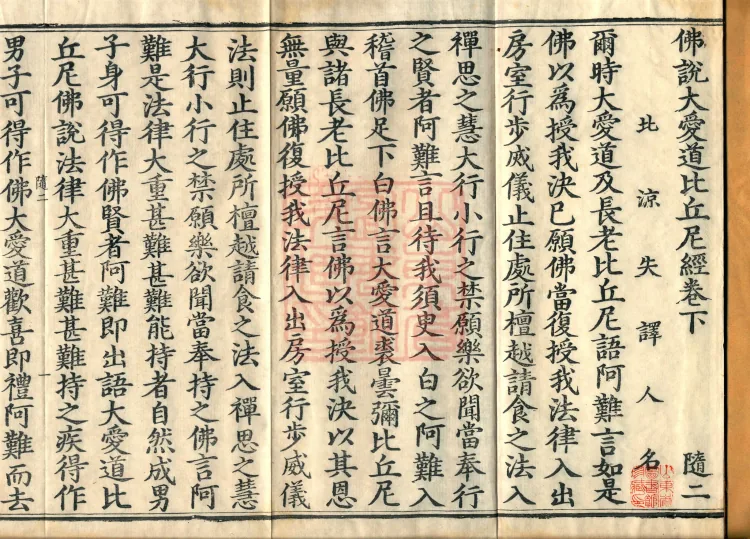 佛說大愛道比丘尼經卷下 隨二
北涼失譯人名
爾時大愛道及長老比丘尼語阿難言如是
佛以爲授我決已願佛當復授我法律入出
房室行步威儀止住處所檀越請食之法入
禪思之慧大行小行之禁願樂欲聞當奉行
之賢者阿難言且待我須臾入白之阿難入
稽首佛足下白佛言大愛道裘曇彌比丘尼
與諸長老比丘尼言佛以爲授我決以其恩
無量願佛復授我法律入出房室行步威儀
法則止住處所檀越請食之法入禪思之慧
大行小行之禁願樂欲聞當奉持之佛言阿
難是法律大重甚難甚難能持者自然成男
子身可得作佛賢者阿難即出語大愛道比
丘尼佛說法律大重甚難甚難持之疾得作
隨二 一
男子可得作佛大愛道歡喜即禮阿難而去